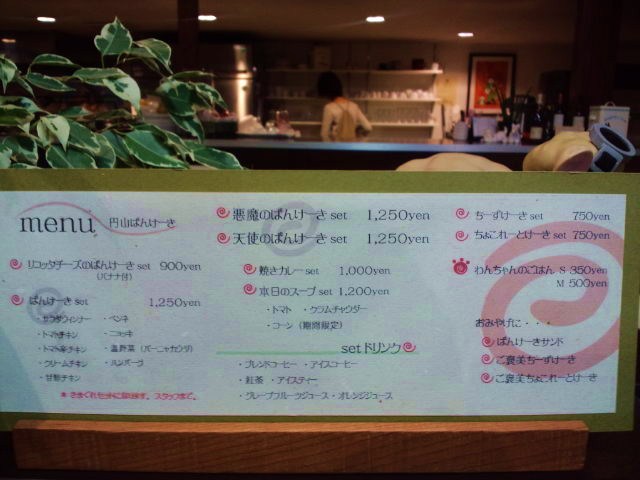 menu 円山ぱんけーき
リコッタチーズのぱんけーき set 900yen
(バナナ付)
ぱんけーき set 1,250yen
・サラダウィンナー ・ペンネ
・トマトチキン ・ニョッキ
・トマト辛チキン ・温野菜 (バーニャカウダ)
・クリームチキン ・ハンバーグ
・甘酢チキン
* きまぐれセットに
スタッフまで。
悪魔のぱんけーき set 1,250yen
天使のぱんけーき set 1,250yen
焼きカレー set 1,000yen
本日のスープ set 1,200yen
・トマト ・クラムチャウダー
・コーン (期間限定)
set ドリンク
・ブレンドコーヒー ・アイスコーヒー
・紅茶 ・アイスティー
・グレープフルーツジュース ・オレンジジュース
ちーずけーき set 750yen
ちょこれーとけーき set 750yen
わんちゃんのごはん S 350yen
M 500yen
おみやげに・・・
ぱんけーきサンド
ご褒美ちーずけーき
ご褒美ちょこれーとけーき